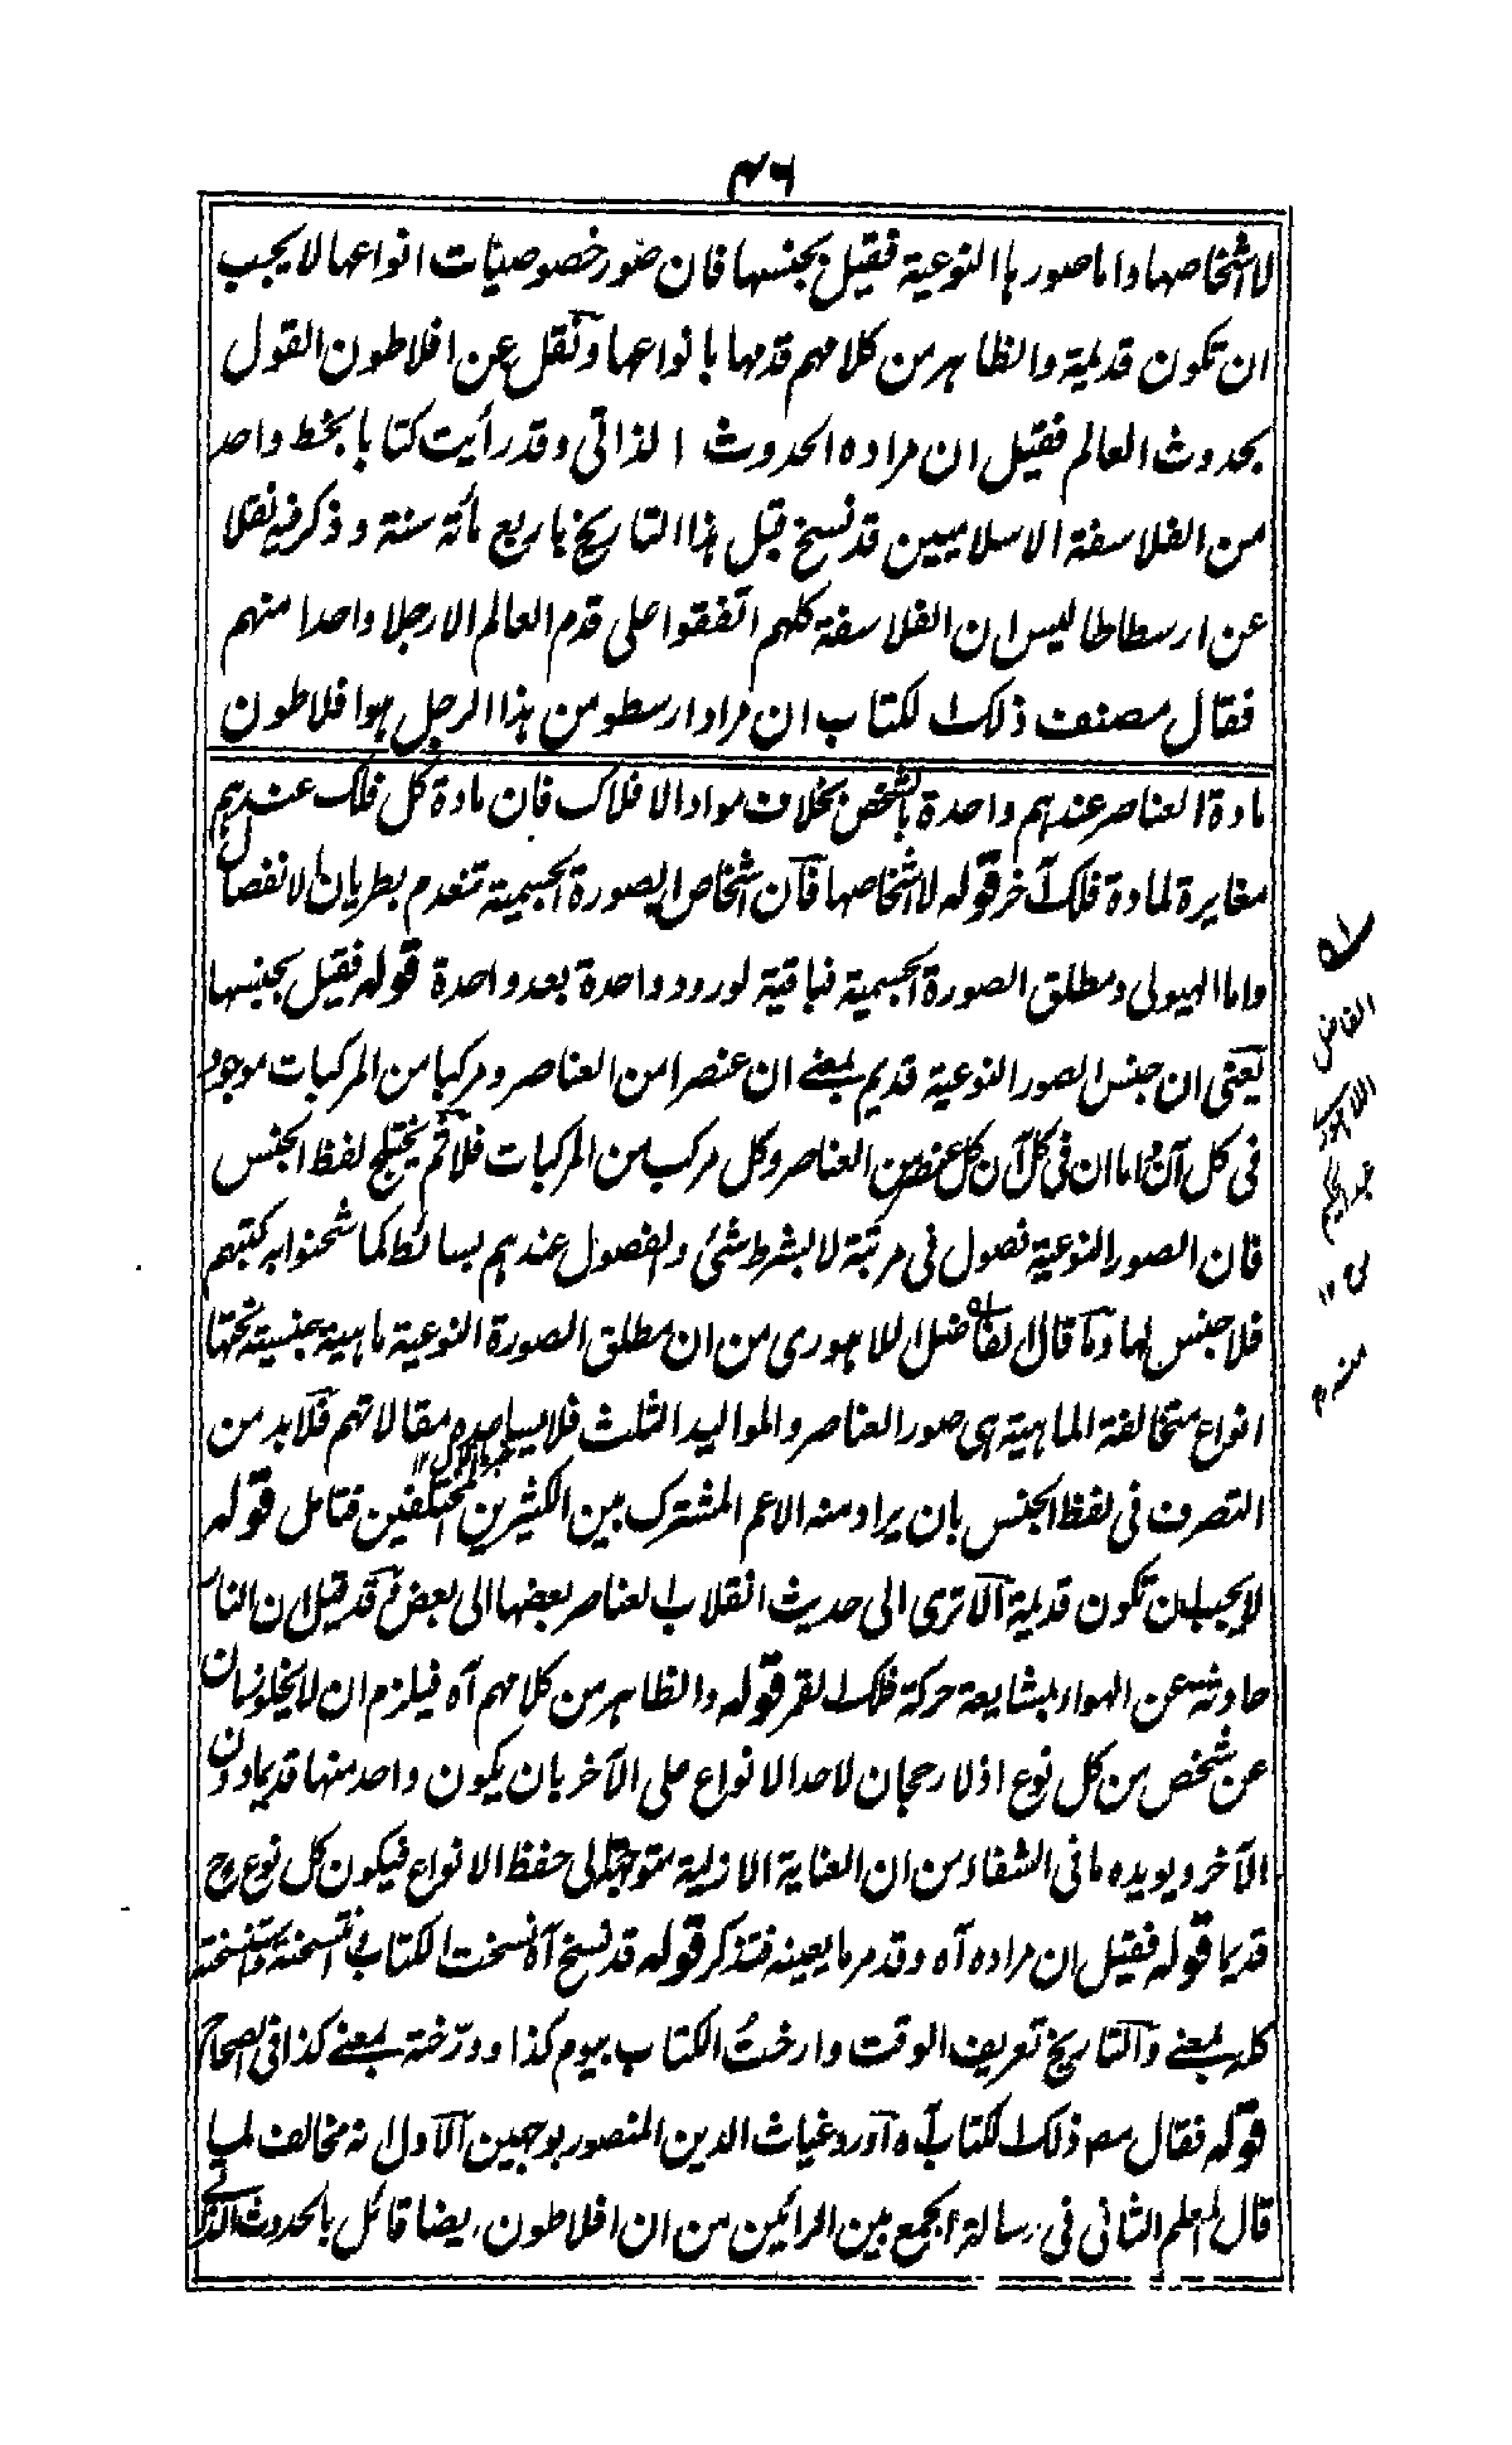 ٤٦
لاشخاصها واما صورها النوعية فقيل بجنسها فان صور خصوصيات انواعها لا يجب
ان تكون قديمة والظاهر من كلامهم قدمها بانواعها ونقل عن افلاطون القول
بحدوث العالم فقيل ان مراده الحدوث الذاتي وقد رأيت كتابا بخط واحد
من الفلاسفة الاسلاميين قد نسخ قبل هذا التاريخ باربع مأة سنة وذكر فيه نقلا
عن ارسطاطاليس ان الفلاسفة كلهم اتفقوا على قدم العالم الا رجلا واحدا منهم
فقال مصنف ذلك الكتاب ان مراد ارسطو من هذا الرجل هو افلاطون
مادة العناصر عندهم واحدة بالشخص بخلاف مواد الافلاك فان مادة كل فلك عندهم
مغايرة لمادة فلك آخر قوله لاشخاصها فان اشخاص الصورة الجسمية تنعدم بطريان الانفصال
واما الهيولى ومطلق الصورة الجسمية فباقية لورود واحدة بعد واحدة قوله فقيل بجنسها
يعنى ان جنس الصور النوعية قديم بمعنے ان عنصرا من العناصر ومركبا من المركبات موجود
فى كل آن واما ان فى كل آن كل عنصر من العناصر وكل مركب من المركبات فلا ثم يختلج لفظ الجنس
فان الصور النوعية فصول فى مرتبة لا بشرط شئ والفصول عندهم بسائط كما شحنوا به كتبهم
فلا جنس لها وما قال الفاضل اللاهورى من ان مطلق الصورة النوعية ماهية جنسية تحتها
انواع متخالفة الماهية هى صور العناصر والمواليد الثلث فلا يساعده مقالاتهم فلا بد من
التصرف فى لفظ الجنس بان يراد منه الاعم المشترك بين الكثيرين المختلفين فتامل قوله
لا يجب ان تكون قديمة الا ترى الى حديث انقلاب العناصر بعضها الى بعض وقد قيل ان النار
حادثة عن الهواء بمشايعة حركة فلك القمر قوله والظاهر من كلامهم آه فيلزم ان لا يخلو زمان
عن شخص من كل نوع اذ لا رجحان لاحد الانواع على الآخر بان يكون واحد منها قديما دون
الآخر ويويده ما فى الشفاء من ان العناية الازلية متوجهة الى حفظ الانواع فيكون كل نوع ح
قديما قوله فقيل ان مراده آه وقد مر ما يعينه فتذكر قوله قد نسخ آه نسخت الكتاب وانتسخته واستنسخته
كله بمعنے والتاريخ تعريف الوقت وارختُ الكتاب بيوم كذا وورّخته بمعنے كذا فى الصحاح
قوله فقال مصـ ذلك الكتاب آه اورد غياث الدين المنصور بوجهين الاول انه مخالف لما
قال المعلم الثانى فى رسالة الجمع بين الرأيين من ان افلاطون ايضا قائل بالحدوث الذاتے
ا٥
الفاضل
اللاهورى
عبد الحكيم
١٢
منه